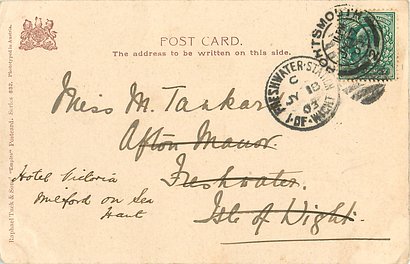 POST CARD.
The address to be written on this side.
Raphael Tuck & Sons' "Empire" Postcard. Series 832. Phototyped in Austria.
PORTSMOUTH
2
FRESHWATER · STATION
C
JY 18
03
I · OF · WIGHT
Miss M. Tankar
Afton Manor.
Freshwater.
Isle of Wight.
Hotel Victoria
Milford on Sea
Hant